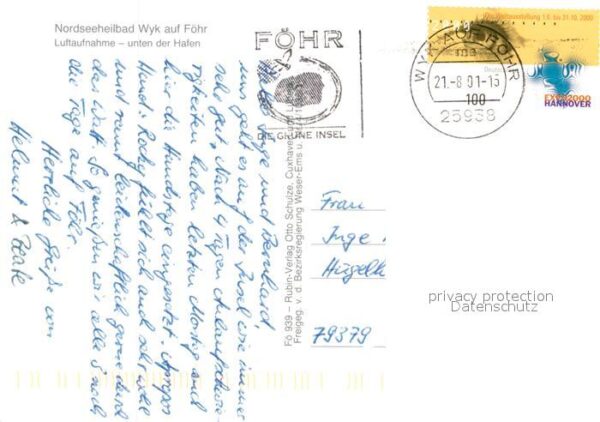 Nordseeheilbad Wyk auf Föhr
Luftaufnahme – unten der Hafen
FÖHR
DIE GRÜNE INSEL
WYK AUF FÖHR
21.-8.01-15
100
25938
Die Weltausstellung 1.6. bis 31.10.2000
EXPO2000
HANNOVER
Fö 939 – Rubin-Verlag Otto Schulze, Cuxhaven
Freigeg. v. d. Bezirksregierung Weser-Ems u.
Inge und Bernhard,
uns geht es auf der Insel wie immer
sehr gut. Nach 4 Tagen
haben letzten Montag auch
hier die Hundstage eingesetzt. Apropos
Hund: Rocky fühlt sich auch sehr wohl
und rennt leidenschaftlich gerne durch
das Watt. So genießen wir alle 3 noch
die Tage auf Föhr.
Herzliche Grüße von
Helmut & Beate
Frau
Inge
79379
privacy protection
Datenschutz